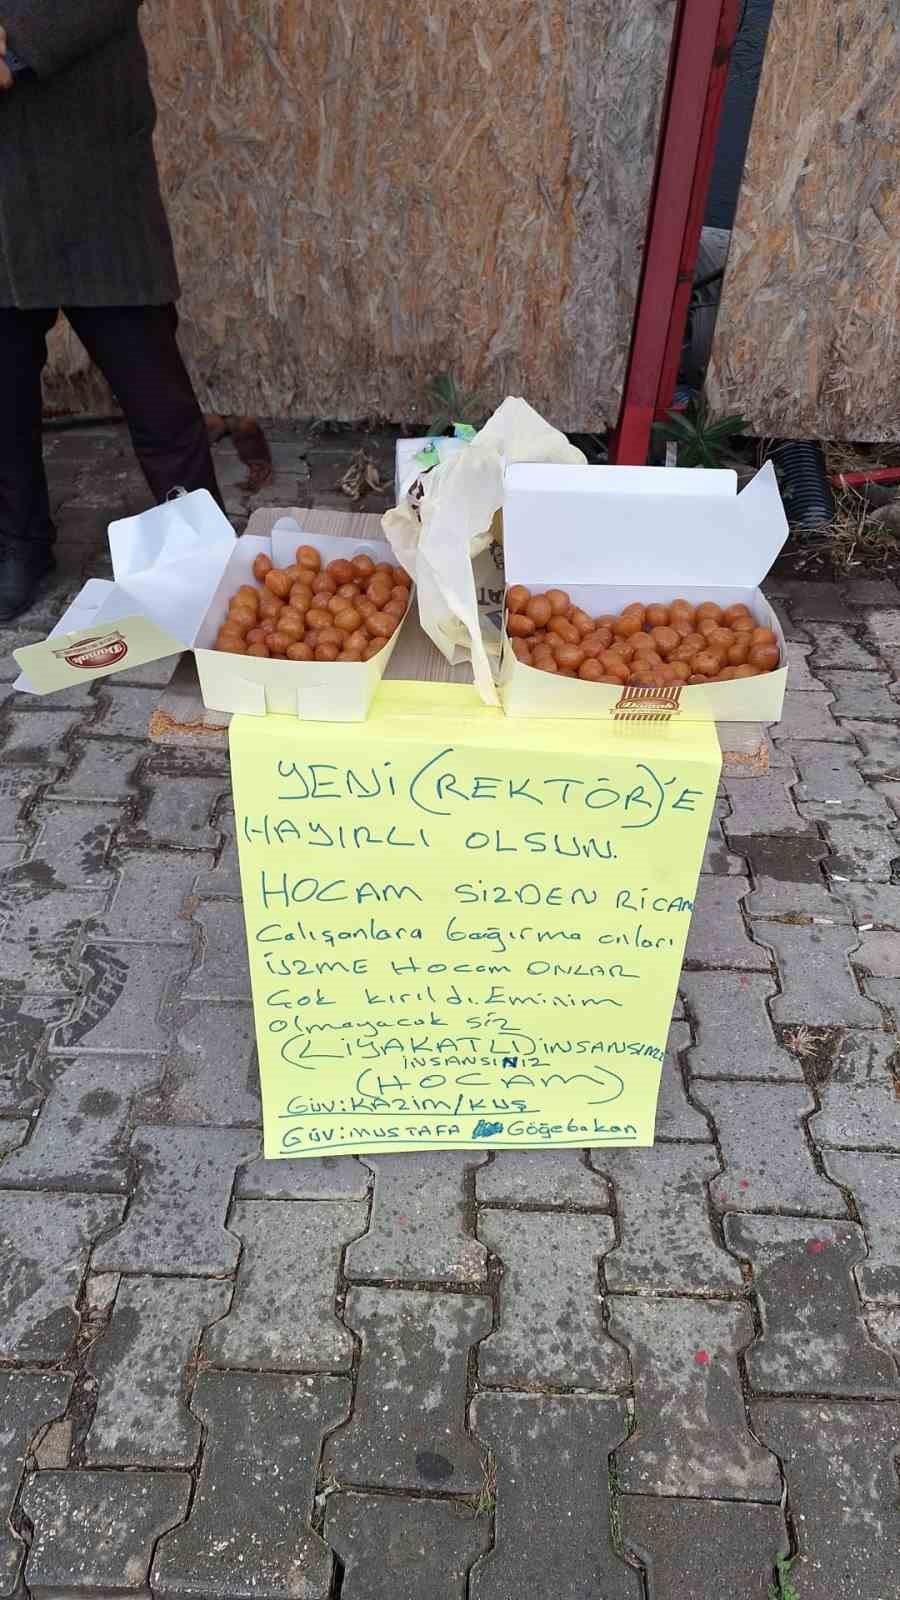 Damak
Damak
YENİ (REKTÖR)'E
HAYIRLI OLSUN.
HOCAM SİZDEN RİCAM
Calışanlara bağırma onları
üzme Hocam ONLAR
Çok kırıldı. Eminim
olmayacak siz
(LİYAKATLI) insansınız
insansıNız
(HOCAM)
Güv: KAZIM/KUŞ
Güv: MUSTAFA Göğebakan